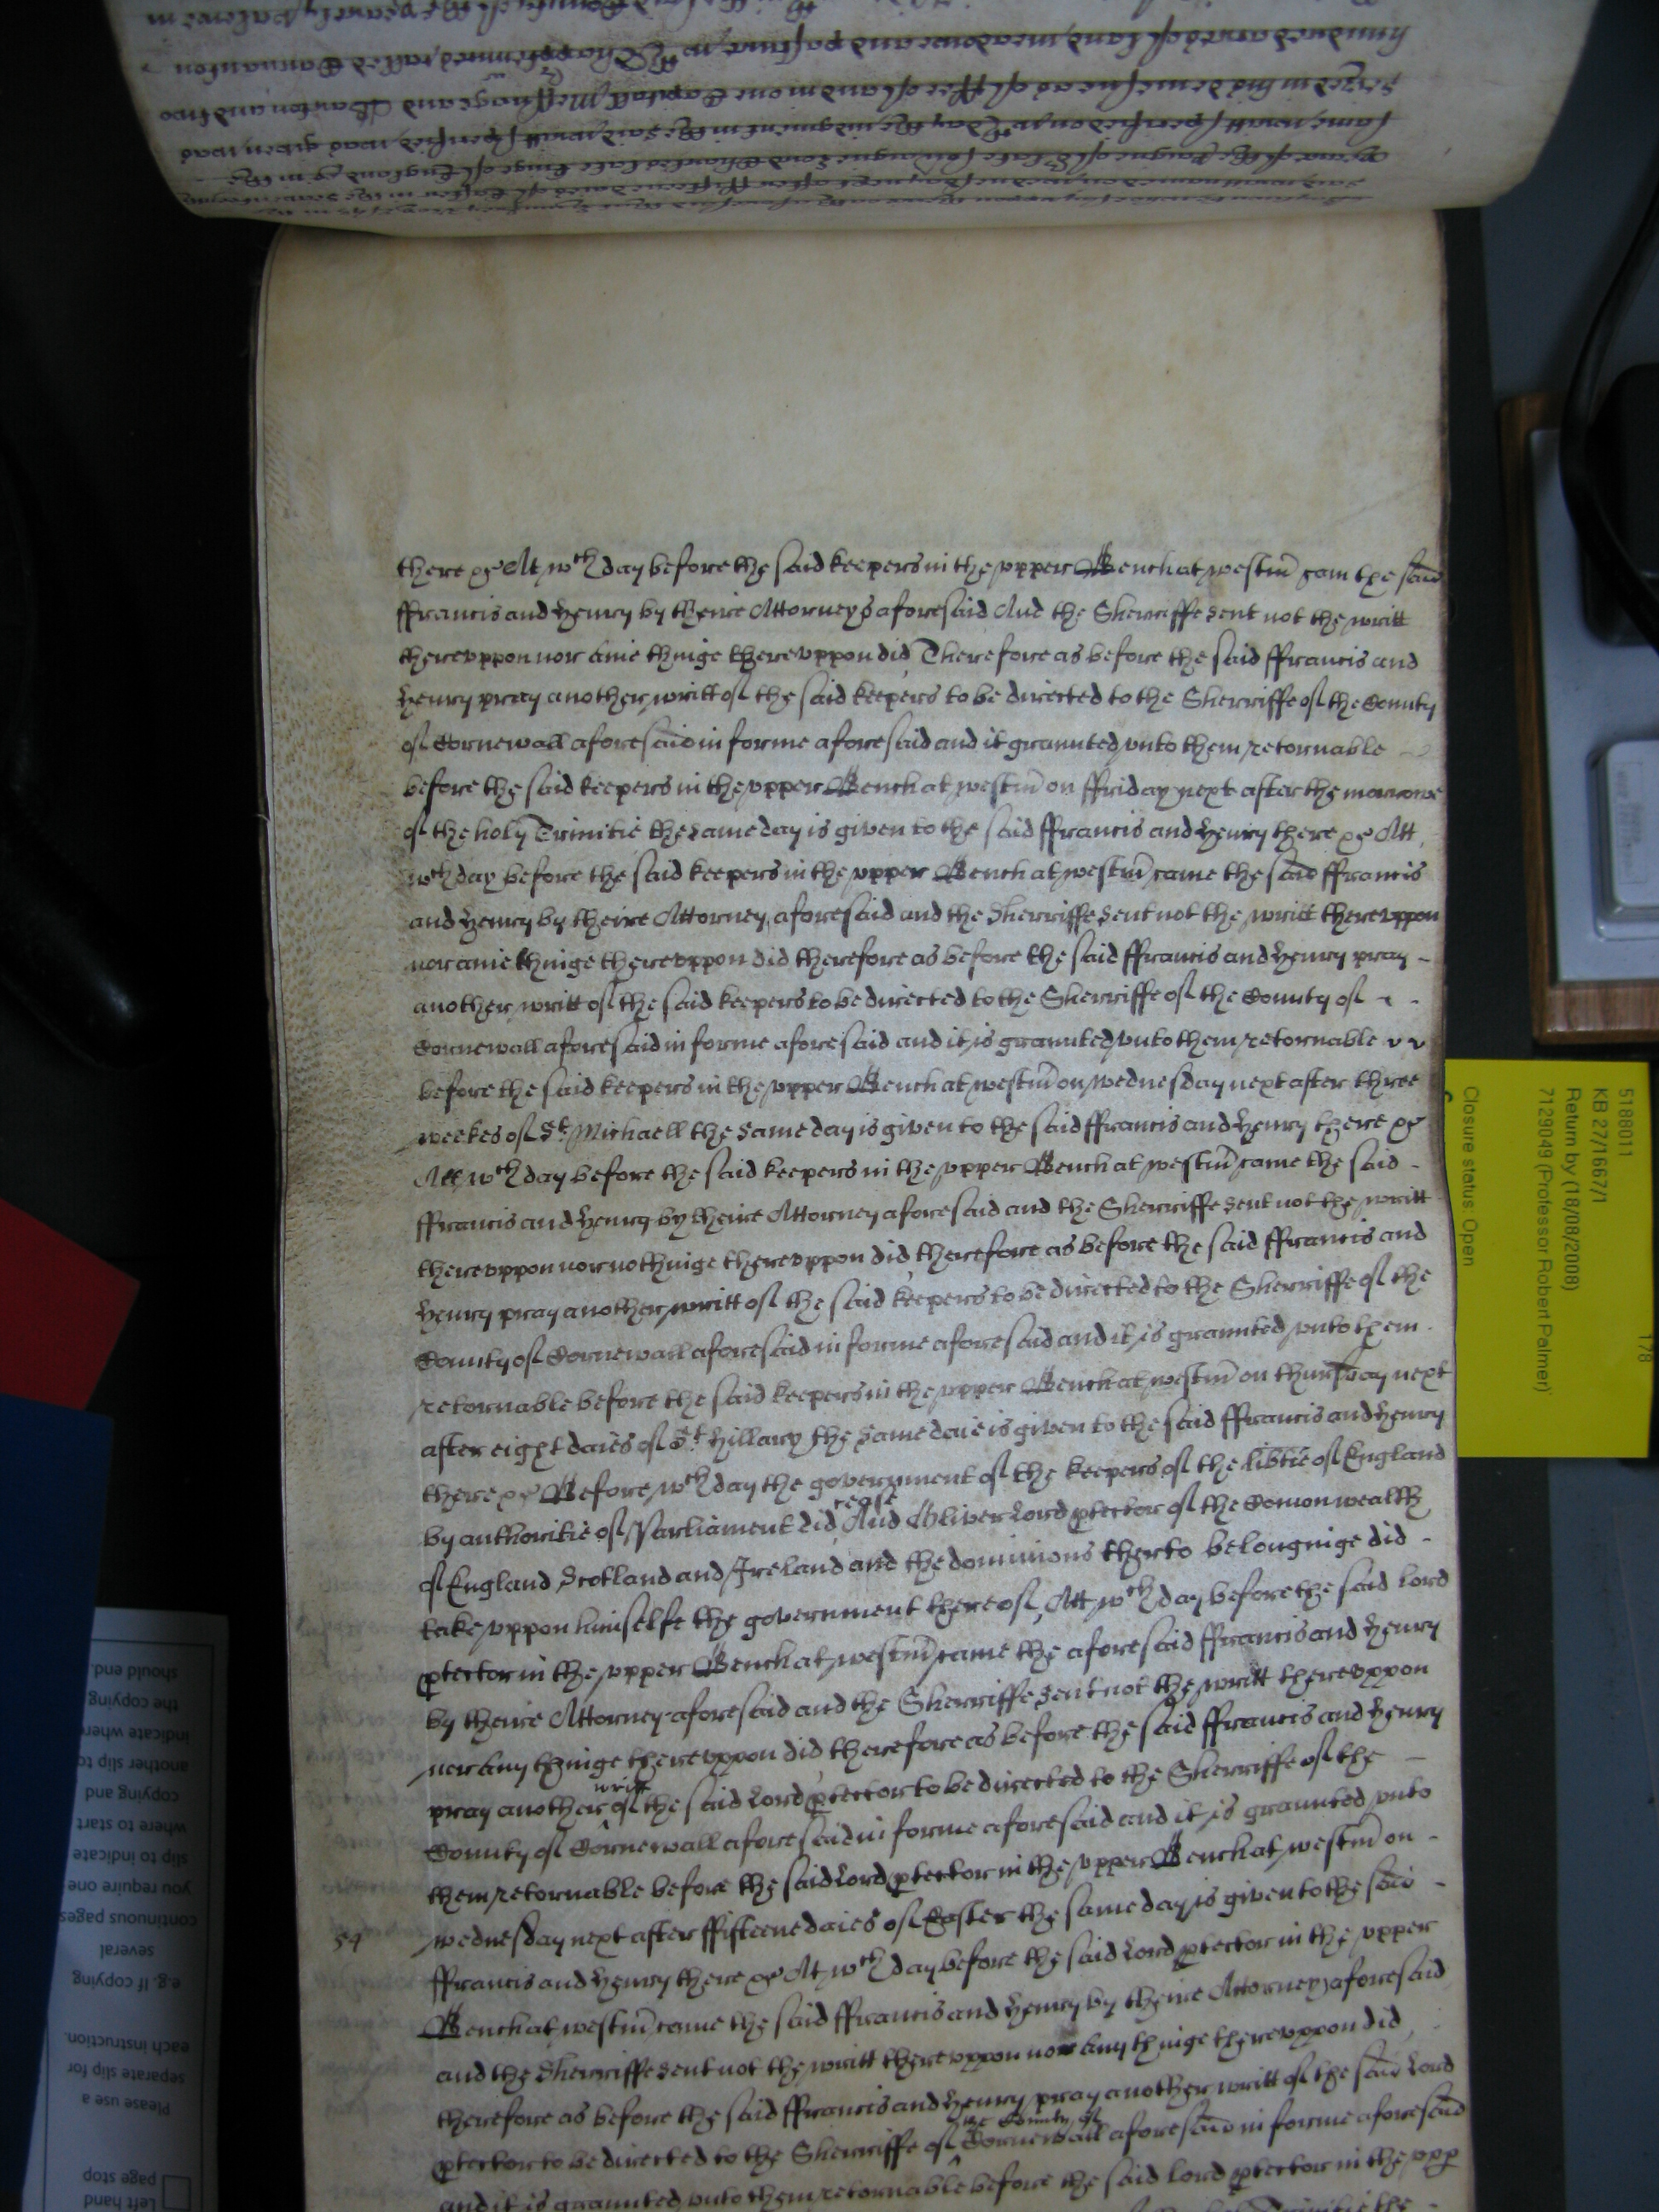 hundred acres of land meadowe and pasture wth Thappurtennces called Carnanton
seized in his demesne as of ffee of and in one Capitall Messuage and Barton and two
same writt specified on wch day the iudgment in the said writt specified was given was
yeare of the Raigne of the late soveraigne Lord Charles late kinge of England &c in the
there &c At wch day before the said keepers in the vpper Bench at westm̄ cam the said
ffrancis and Henry by theire Attorneys aforesaid And the Sherriffe sent not the writt
therevppon nor anie thinge therevppon did Therefore as before the said ffrancis and
Henry pray another writt of the said keepers to be directed to the Sherriffe of the County
of Cornewall aforesaid in forme aforesaid and it graunted vnto them retornable
before the said keepers in the vpper Bench at westm̄ on ffriday next after the morrowe
of the holy Trinitie the same day is given to the said ffrancis and Henry there &c Att
wch day before the said keepers in the vpper Bench at westm̄ came the said ffrancis
and Henry by theire Attorney aforesaid and the Sherriffe sent not the writt therevppon
nor anie thinge therevppon did therefore as before the said ffrancis and Henry pray -
another writt of the said keepers to be directed to the Sherriffe of the County of
Cornewall aforesaid in forme aforesaid and it is graunted vnto them retornable
before the said keepers in the vpper Bench at westm̄ on wednesday next after three
weekes of St. Michaell the same day is given to the said ffrancis and Henry there &c
Att wch day before the said keepers in the vpper Bench at westm̄ came the said -
ffrancis and Henry by theire Attorney aforesaid and the Sherriffe sent not the writt
therevppon nor nothinge therevppon did therefore as before the said ffrancis and
Henry pray another writt of the said keepers to be directed to the Sherriffe of the
County of Cornewall aforesaid in forme aforesaid and it is graunted vnto them
retornable before the said keepers in the vpper Bench at westm̄ on thursday next
after eight daies of St. Hillary the same daie is given to the said ffrancis and Henry
there &c Before wch day the government of the keepers of the libtie of England
by authoritie of Parliament did cease And Oliver Lord ptector of the Comonwealth
of England Scotland and Ireland and the dominions therto belonginge did -
take vppon himselfe the government thereof Att wch day before the said Lord
ptector in the vpper Bench at westm̄ came the aforesaid ffrancis and Henry
by theire Attorney aforesaid and the Sherriffe sent not the writt therevppon
nor any thinge therevppon did therefore as before the said ffrancis and Henry
pray another writt of the said Lord ptector to be directed to the Sherriffe of the
County of Cornewall aforesaid in forme aforesaid and it is graunted vnto
them retornable before the said Lord ptector in the vpper Bench at westm̄ on -
wednesday next after ffifteene daies of Easter the same day is given to the said -
54
ffrancis and Henry there &c At wch day before the said Lord ptector in the vpper
Bench at westm̄ came the said ffrancis and Henry by theire Attorney aforesaid
and the Sherriffe sent not the writt therevppon nor any thinge therevppon did
therefore as before the said ffrancis and Henry pray another writt of the said Lord
ptector to be directed to the Sherriffe of the County of Cornewall aforesaid in forme aforesaid
and it is graunted vnto them retornable before the said Lord ptector in the vpp
Trinitie the
178
5188011
KB 27/1667/1
Return by (18/08/2008)
7129049 (Professor Robert Palmer)
Closure status: Open
Left hand
page stop
Please use a
separate slip for
each instruction.
e.g. if copying
several
continuous pages
you require one
slip to indicate
where to start
copying and
another slip to
indicate where
the copying
should end.